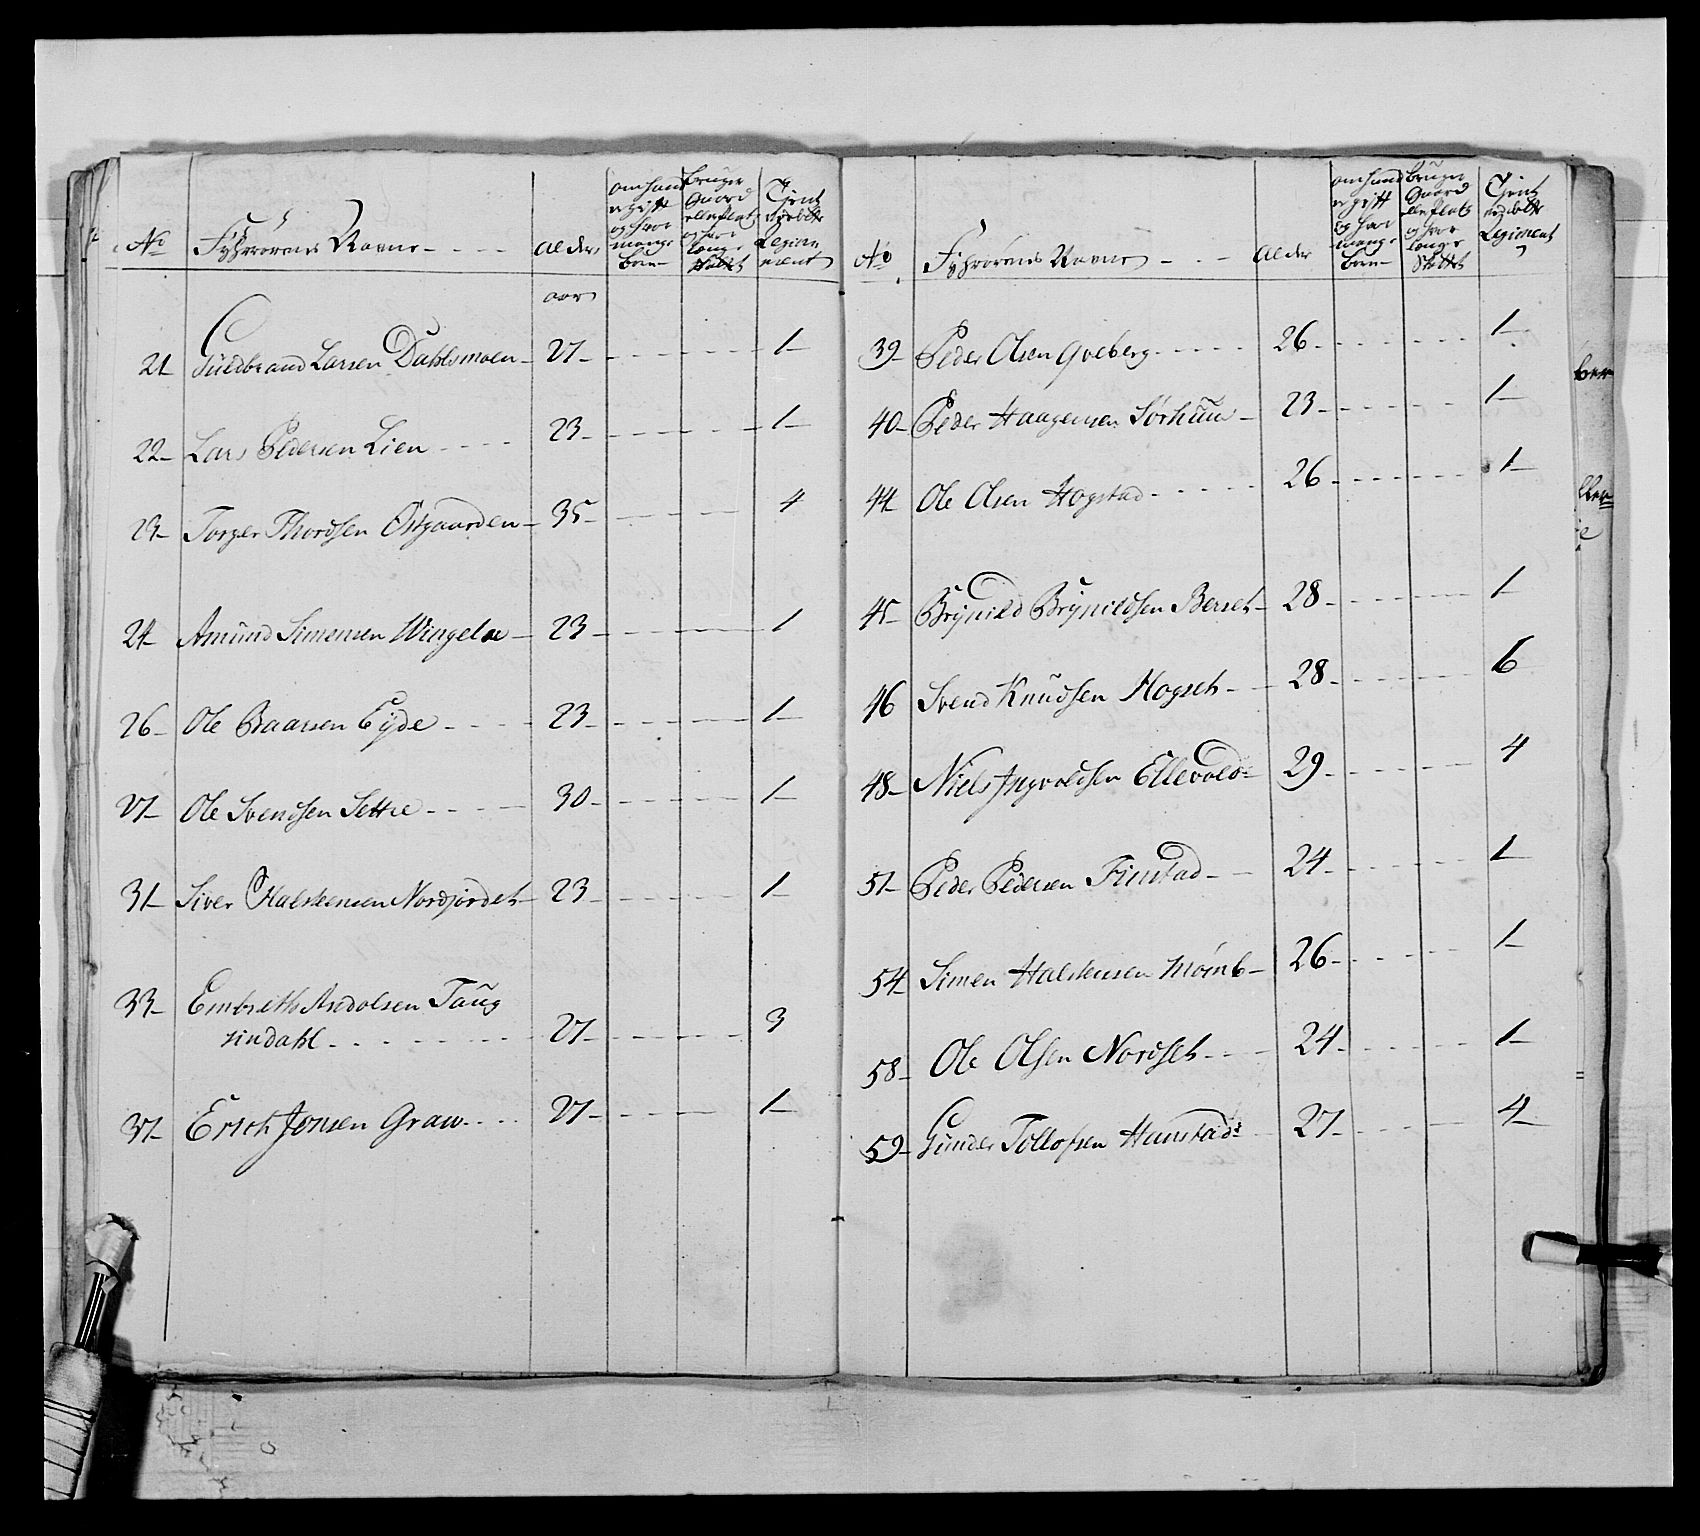 No Navne - - - - Alder om hand er gift og hvor mange bøn bruger Gaard eller Plads og hvor længe Tient ved dette Regiment
aar
21 Guldbrand Larsen Dahlsmoen 27 - - - 1
22 Lars Pedersen Lien - - - 23 - - - 1
23 Torger Thordsen Østgaarden 35 - - - 4
24 Amund Simensen Wingelae 23 - - - 1
26 Ole Baarsen Eyde - - - 23 - - - 1
27 Ole Svendsen Settre - - - 30 - - - 1
31 Siver Halstensen Nordjordet 23 - - - 1
33 Embreth Asdolsen Taug
rindahl - - - 27 - - - 3
37 Erich Jonsen Graw - - - 27 - - - 1
No Navne - - - Alder om hand er gift og hvor mange bøn bruger Gaard eller Plads og hvor længe Tient ved dette Regiment
39 Peder Olsen Qveberg - - - 26 - - - 1
40 Peder Haagensen Sørhuus 23 - - - 1
44 Ole Olsen Hogstad - - - 26 - - - 1
45 Brynild Brynildsen Berset 28 - - - 1
46 Svend Knudsen Hogset - - 28 - - - 6
48 Niels Ingvoldsen Ellevold 29 - - - 4
51 Peder Pedersen Finstad - - 24 - - - 1
54 Simen Halstensen Mømb 26 - - - 1
58 Ole Olsen Nordset - - - 24 - - - 1
59 Gunder Tollofsen Hunstad 27 - - - 4